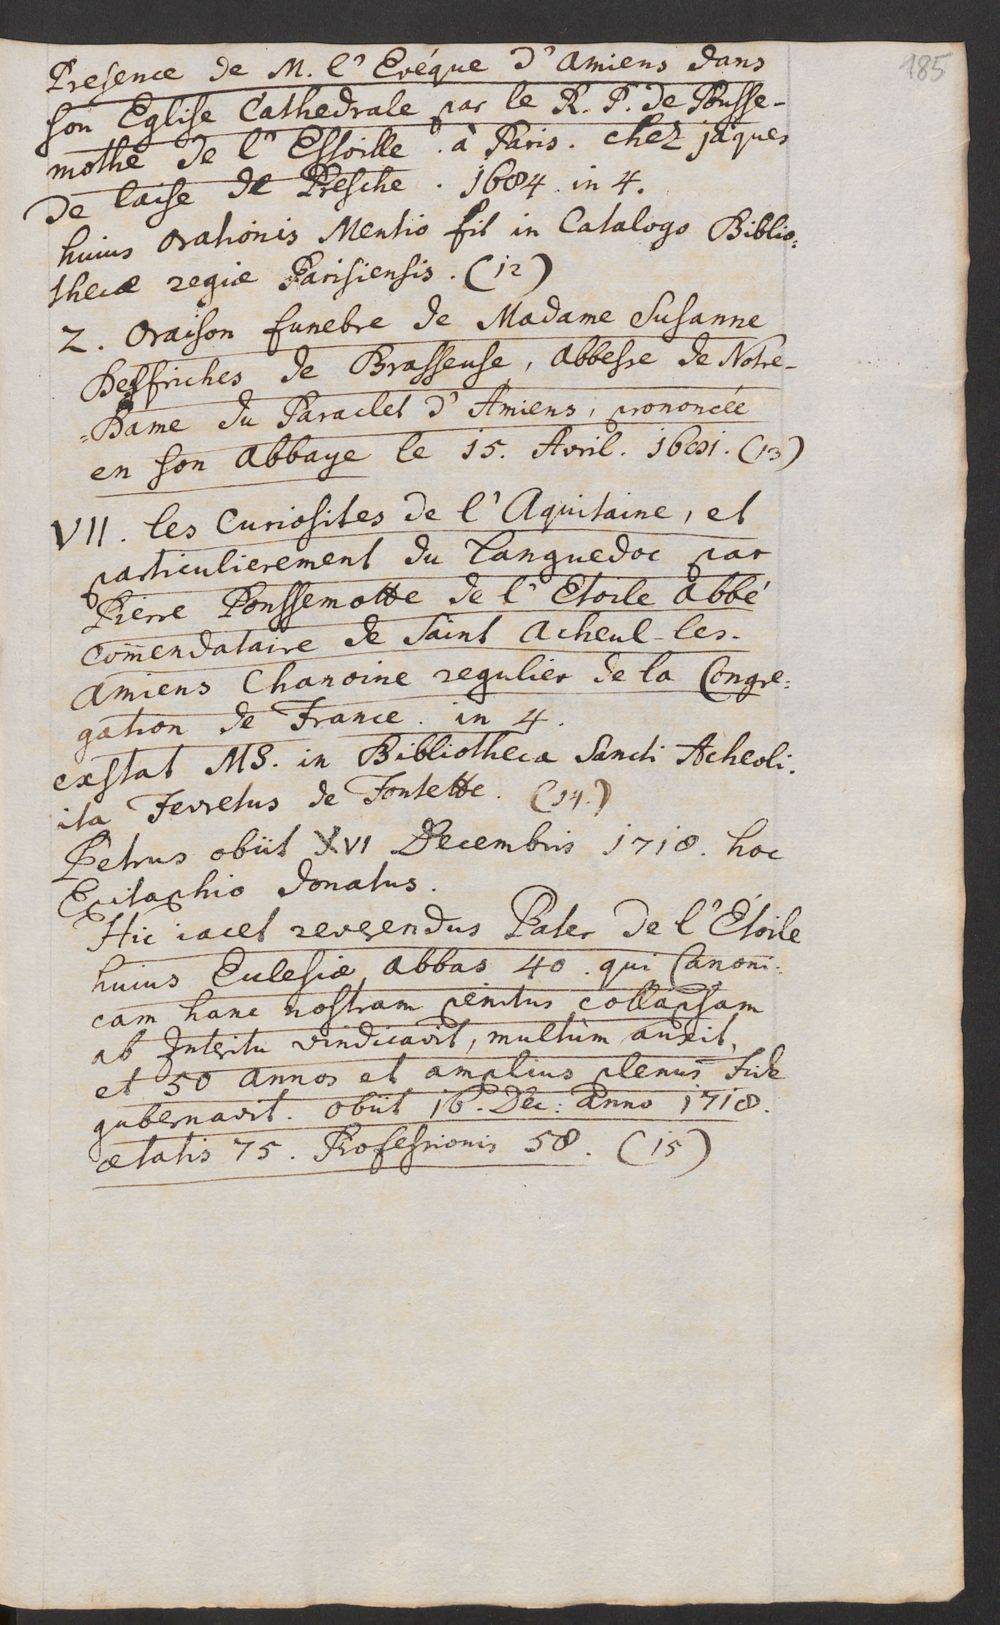 185
Presence de M. l'Evéque d'Amiens dans
son Eglise Cathedrale par le R. P. de Pousse-
mothe de l'Estoille. à Paris. chez jaques
de laise de Presche. 1684. in 4.
huius orationis Mentio fit in Catalogo Biblio:
thecæ regiæ Parisiensis. (12)
2. Oraison funebre de Madame Susanne
Desfriches de Brasseuse, Abbesse de Notre-
=Dame du Paraclet d'Amiens, prononcée
en son Abbaye le 15. Avril. 1681. (13)
VII. les Curiosites de l'Aquitaine, et
particulierement du Languedoc par
Pierre Poussemotte de l'Etoile Abbé
com̄endataire de Saint Acheul-les-
Amiens Chanoine regulier de la Congre:
gation de France. in 4.
exstat MS. in Bibliotheca Sancti Acheoli.
ita Fevretus de Fontette. (14.)
Petrus obiit XVI Decembris 1718. hoc
Epitaphio donatus.
Hic iacet reverendus Pater de l'Étoile
huius Ecclesiæ Abbas 40. qui Canoni:
cam hanc nostram penitus collapsam
ab Interitu vindicavit, multùm auxit,
et 50 annos et amplius plenus Fide
gubernavit. obiit 16. Dec: Anno 1718.
ætatis 75. Professionis 58. (15)